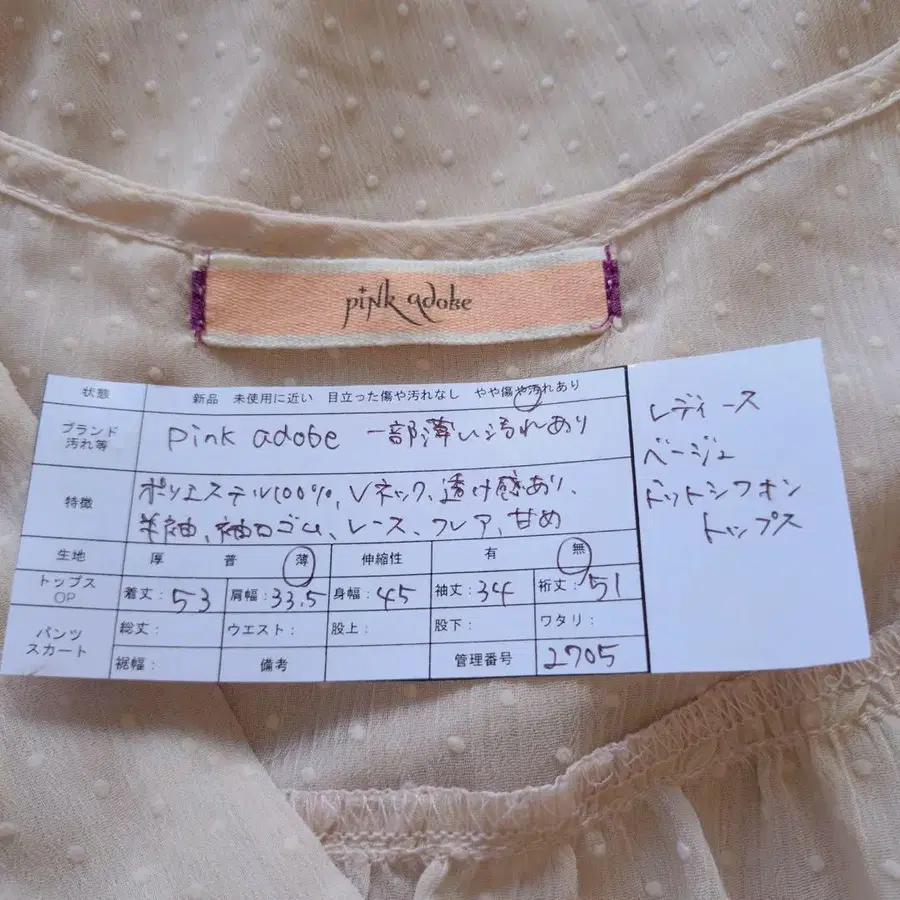 pink adobe
状態 新品 未使用に近い 目立った傷や汚れなし やや傷や汚れあり
ブランド
汚れ等
pink adobe 一部薄い汚れあり
特徴
ポリエステル100%、Vネック、透け感あり、
半袖、袖口ゴム、レース、フレア、甘め
生地 厚 普 薄 伸縮性 有 無
トップス
OP
着丈:53 肩幅:33.5 身幅:45 袖丈:34 裄丈:51
パンツ
スカート
総丈: ウエスト: 股上: 股下: ワタリ:
裾幅: 備考 管理番号 2705
レディース
ベージュ
ドットシフォン
トップス